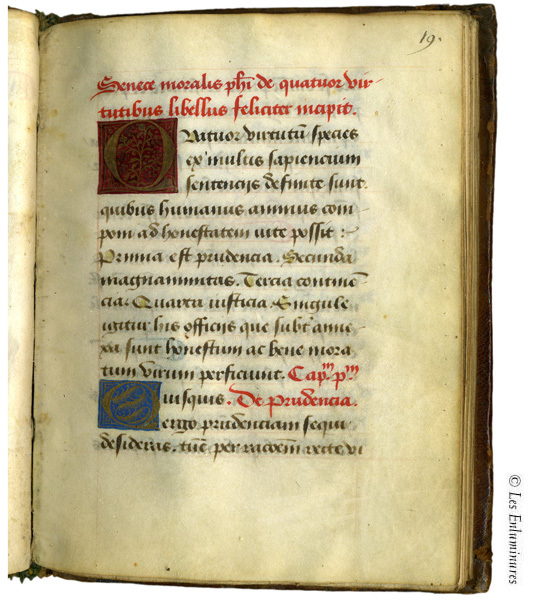 19.
Senece moralis ph̄i de quatuor vir-
tutibus libellus feliciter incipit.
Quatuor virtutū species
ex multis sapiencium
sentenciis definite sunt.
quibus humanus animus com-
poni ad honestatem vite possit :
Prima est prudencia. Secunda
magnanimitas. Tercia continē-
cia. Quarta iusticia. Singule
igitur his officiis que subt' anne-
xa sunt honestum ac bene mora
tum virum perficiunt. Capᵐ pᵐ
Quisquis. De Prudencia.
ergo prudenciam sequi
desideras. tūc per racōem recte vi
© Les Enluminures